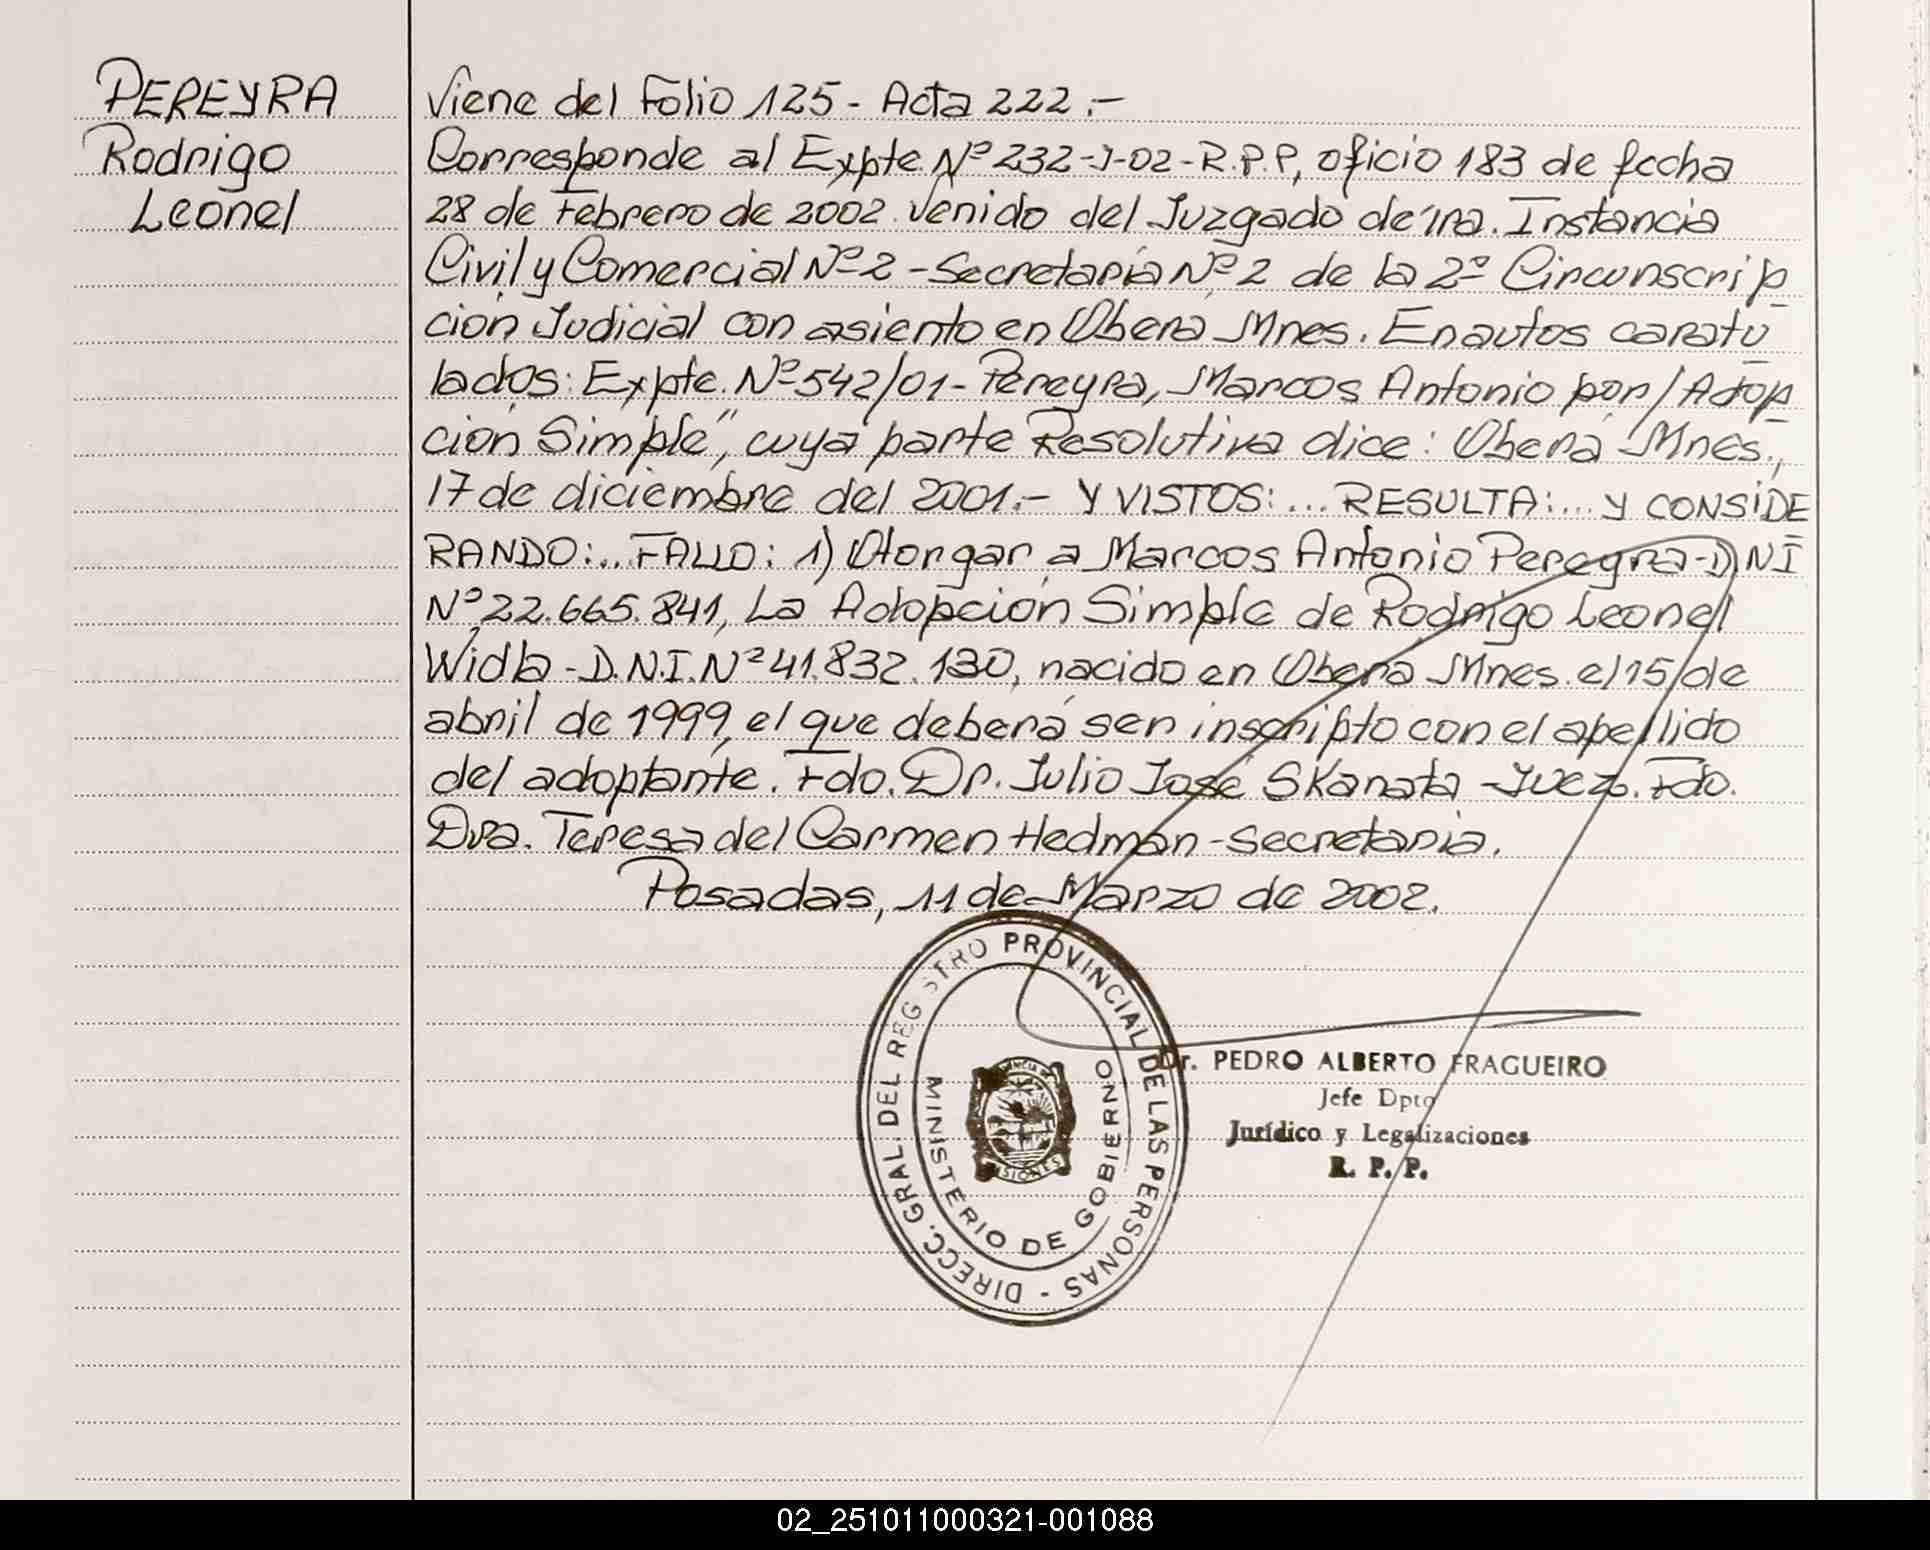 PEREYRA
Rodrigo
Leonel
Viene del Folio 125 - Acta 222.-
Corresponde al Expte. Nº 232-J-02-R.P.P, oficio 183 de fecha
28 de Febrero de 2002. Venido del Juzgado de 1ra. Instancia
Civil y Comercial Nº 2 - Secretaría Nº 2 de la 2º Circunscrip
ción Judicial con asiento en Oberá Mnes. En autos caratu
lados: Expte. Nº 542/01 - Pereyra, Marcos Antonio por/Adop
ción Simple", cuya parte Resolutiva dice: Oberá Mnes.,
17 de diciembre del 2001.- Y VISTOS:... RESULTA:... y CONSIDE
RANDO:... FALLO: 1) Otorgar a Marcos Antonio Pereyra - D.NI
Nº 22.665.841, La Adopción Simple de Rodrigo Leonel
Widla - D.N.I. Nº 41.832.130, nacido en Oberá Mnes. el 15 de
abril de 1999, el que deberá ser inscripto con el apellido
del adoptante. Fdo. Dr. Julio José Skanata - Juez. Fdo.
Dra. Teresa del Carmen Hedman - Secretaria.
Posadas, 11 de Marzo de 2002.
DIRECC. GRAL. DEL REGISTRO PROVINCIAL DE LAS PERSONAS -
MINISTERIO DE GOBIERNO
PROVINCIA DE
MISIONES
Dr. PEDRO ALBERTO FRAGUEIRO
Jefe Dpto
Jurídico y Legalizaciones
R. P. P.
02_251011000321-001088